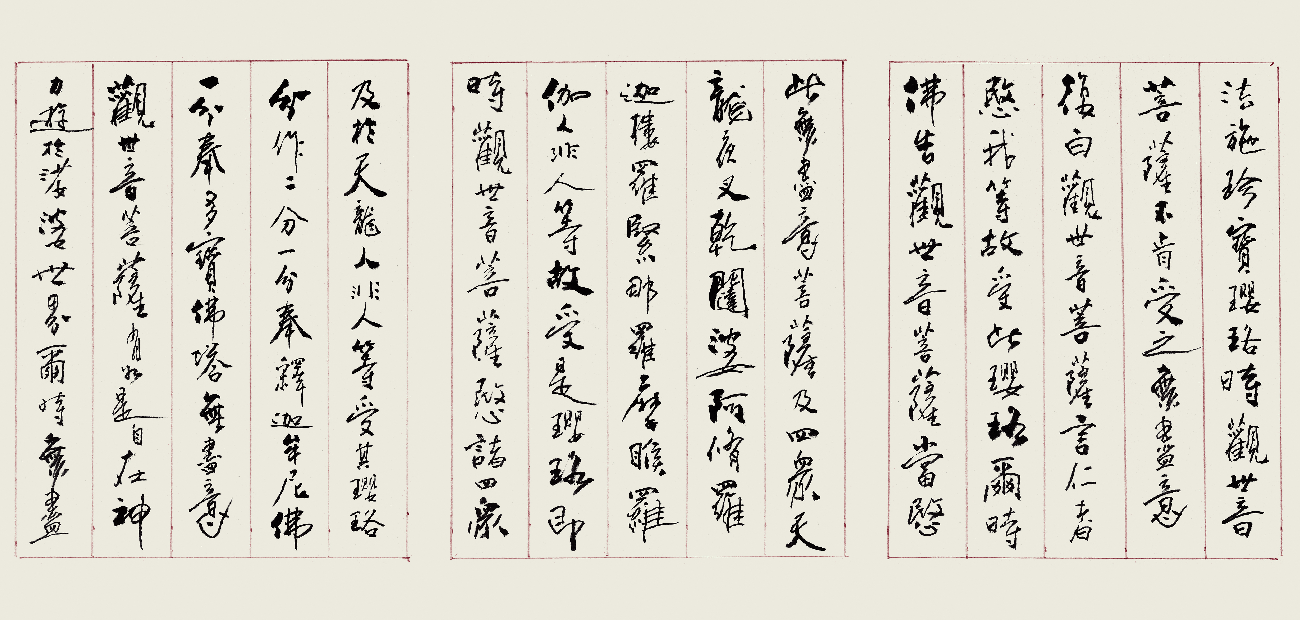 法施珍寶瓔珞時觀世音
菩薩不肯受之無盡意
復白觀世音菩薩言仁者
愍我等故受此瓔珞爾時
佛告觀世音菩薩當愍
此無盡意菩薩及四眾天
龍夜叉乾闥婆阿脩羅
迦樓羅緊那羅摩睺羅
伽人非人等故受是瓔珞即
時觀世音菩薩愍諸四眾
及於天龍人非人等受其瓔珞
分作二分一分奉釋迦牟尼佛
一分奉多寶佛塔無盡意
觀世音菩薩有如是自在神
力遊於娑婆世界爾時無盡